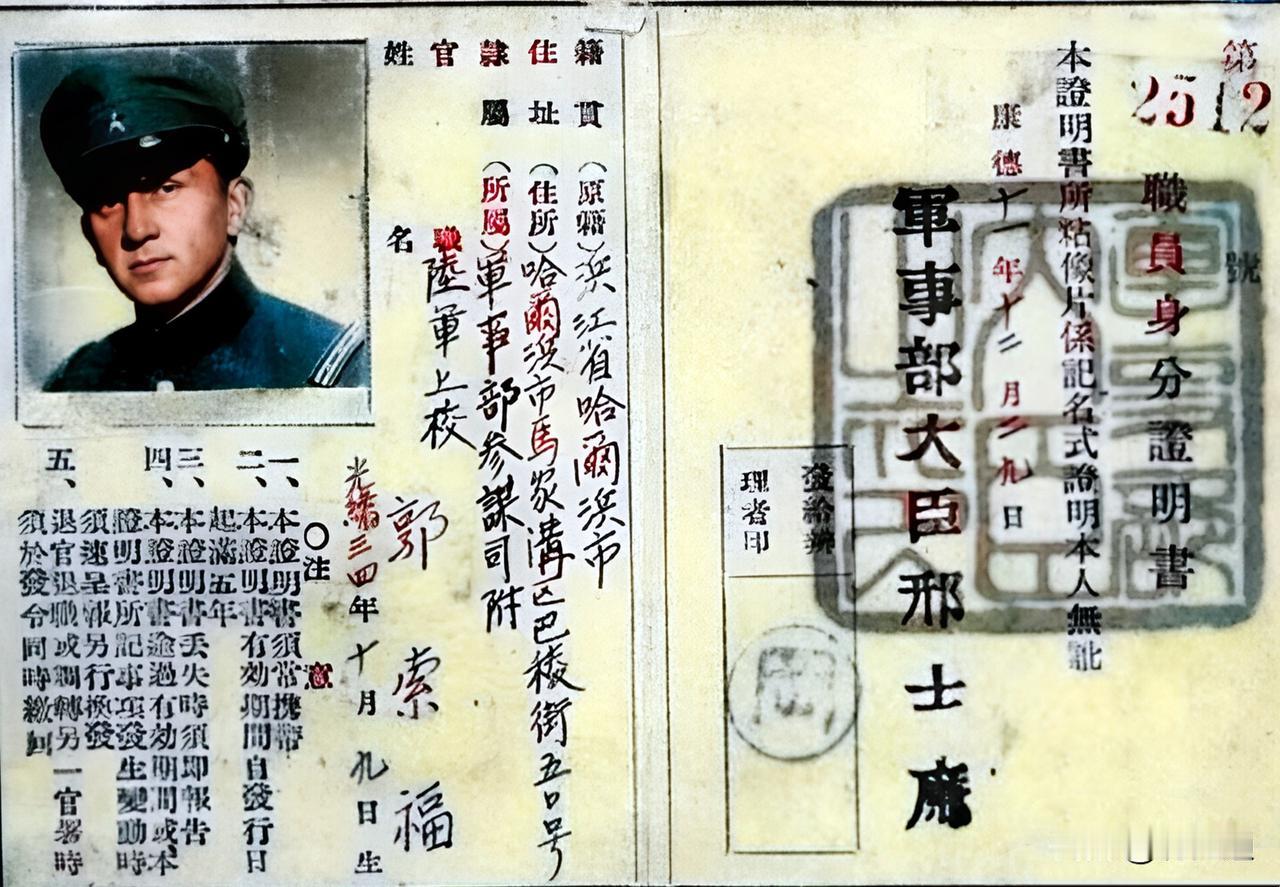 第2512號
職員身分證明書
本證明書所粘像片係記名式證明本人無訛
康德十一年十二月二九日
軍事部大臣邢士廉
發給辦
理者印
籍貫(原籍)浜江省哈爾浜市
住址(住所)哈爾浜市馬家溝区巴棱街五〇号
隸屬(所屬)軍事部参謀司附
官職 陸軍上校
姓名 郭索福
光緒三四年十月九日生
〇注意
一、本證明書須常携帶
二、本證明書有効期間自發行日
起滿五年
三、本證明書丟失時須即報告
四、本證明書逾過有効期間或本
證明書所記事項發生變動時
須速呈報另行換發
五、退官退職或調轉另一官署時
須於發令同時繳回